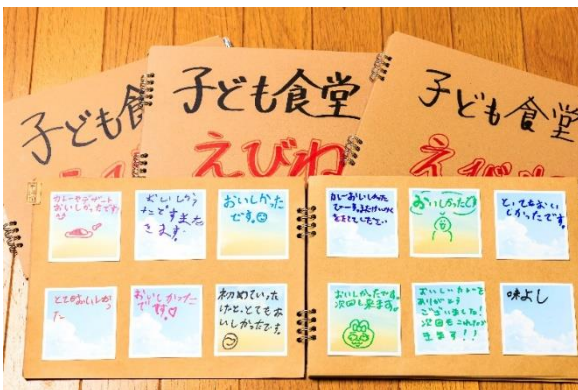 子ども食堂
子ども食堂
えびね
子ども食堂
えびね
カレーやデザート
おいしかったです!
おいしかっ
たですまた
きます。
おいしかった
です。
とてもおいしかっ
た
おいしかった
です♡
初めていった
けど、とてもお
いしかったです。
カレーおいしかった
おいしかったです
とってもおい
しかったです。
おいしかったです。
次回も来ます。
おいしいカレーを
ありがとう
ございました!
次回もこれたら
来ます!!
味よし